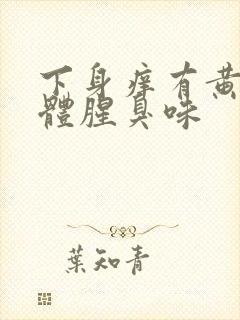 下身痒有黄
體腥臭味
葉知青